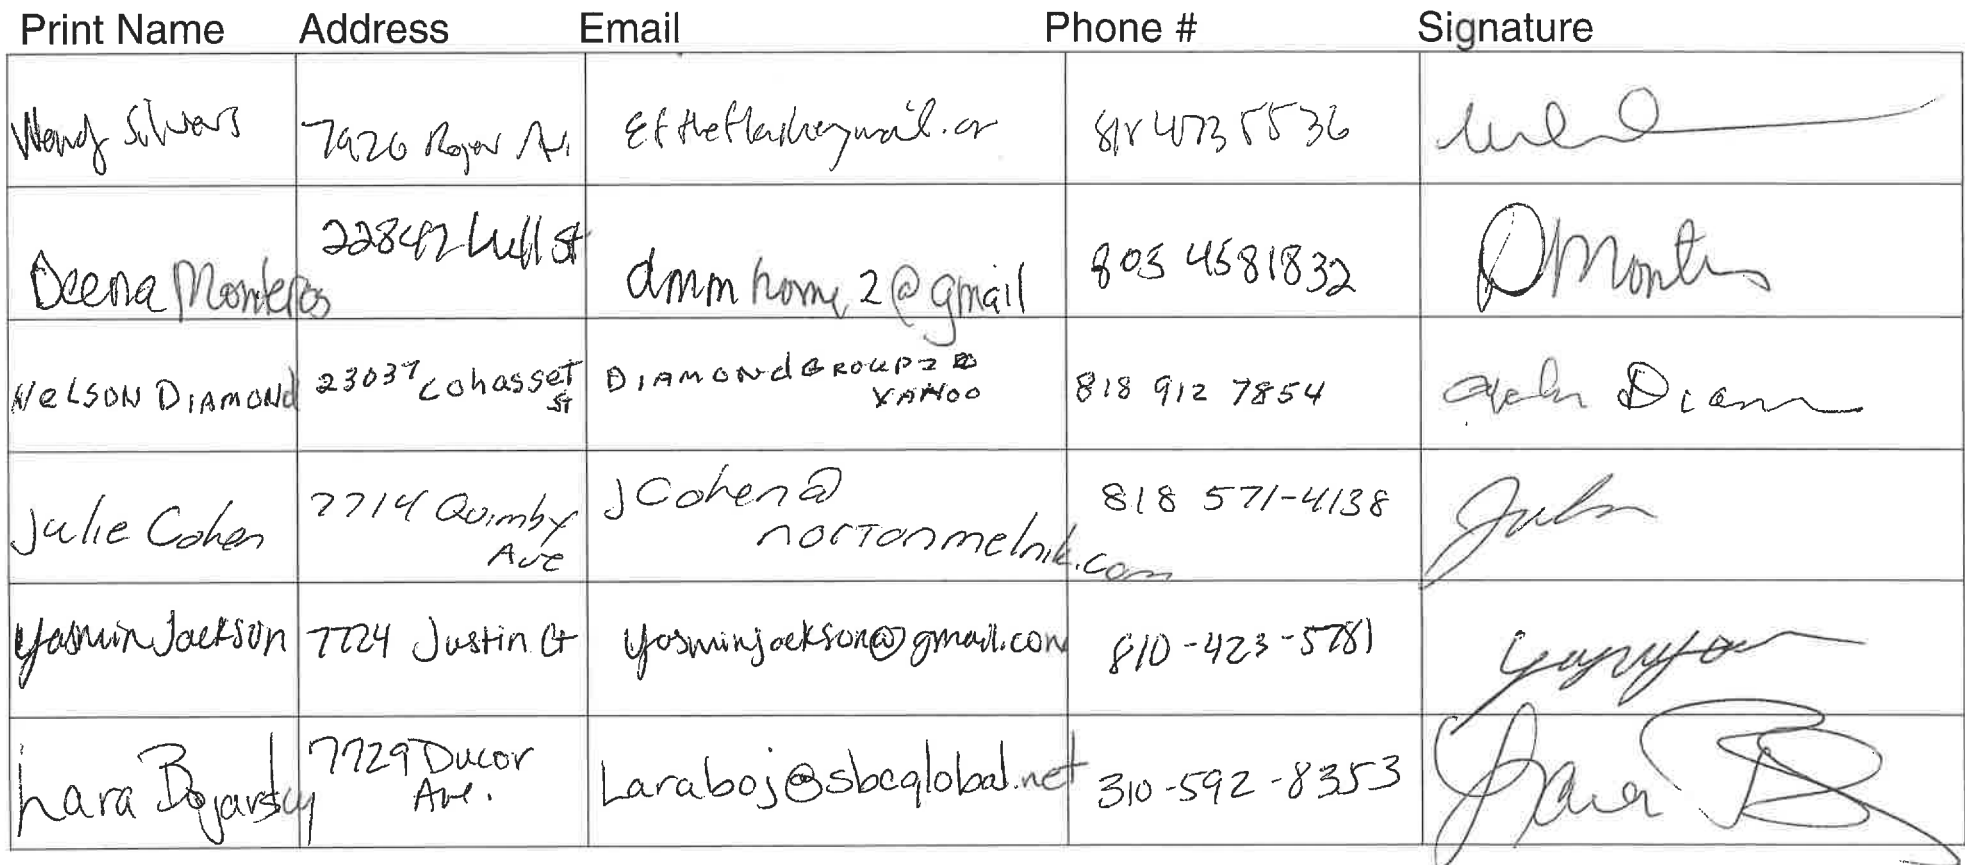 Print Name Address Email Phone # Signature
Wendy Silvers 7926 Ave. 818 473 5536
22842 Lull St
Deena Monteros dmmhome2@gmail 805 4581832 DMontes
NELSON DIAMOND 23037 Cohasset St DIAMONDGROUP2@ YAHOO 818 912 7854
Julie Cohen 7714 Quimby Ave JCohen@ nortonmelnik.com 818 571-4138
Yasmin Jackson 7724 Justin Ct yasminjackson@gmail.com 810-423-5781
Lara Bojarsky 7729 Ducor Ave. Laraboj@sbcglobal.net 310-592-8353 Lara B